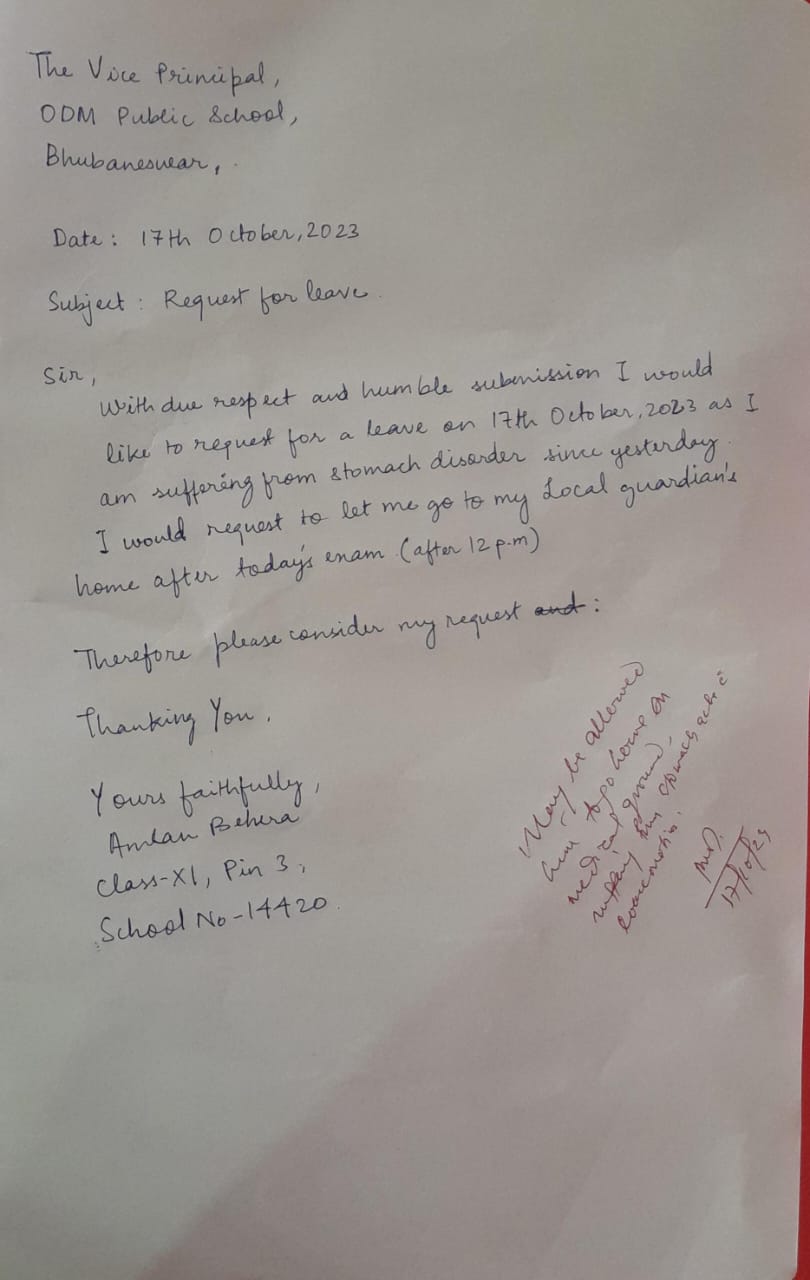 The Vice Principal,
ODM Public School,
Bhubaneswar,
Date: 17th October, 2023
Subject: Request for leave.
Sir,
With due respect and humble submission I would
like to request for a leave on 17th October, 2023 as I
am suffering from stomach disorder since yesterday.
I would request to let me go to my Local guardian's
home after today's exam (after 12 p.m)
Therefore please consider my request and:
Thanking You.
Yours faithfully,
Amlan Behera
Class-XI, Pin 3,
School No-14420.
May be allowed
him to go home on
medical ground.
stomach ache
17/10/23